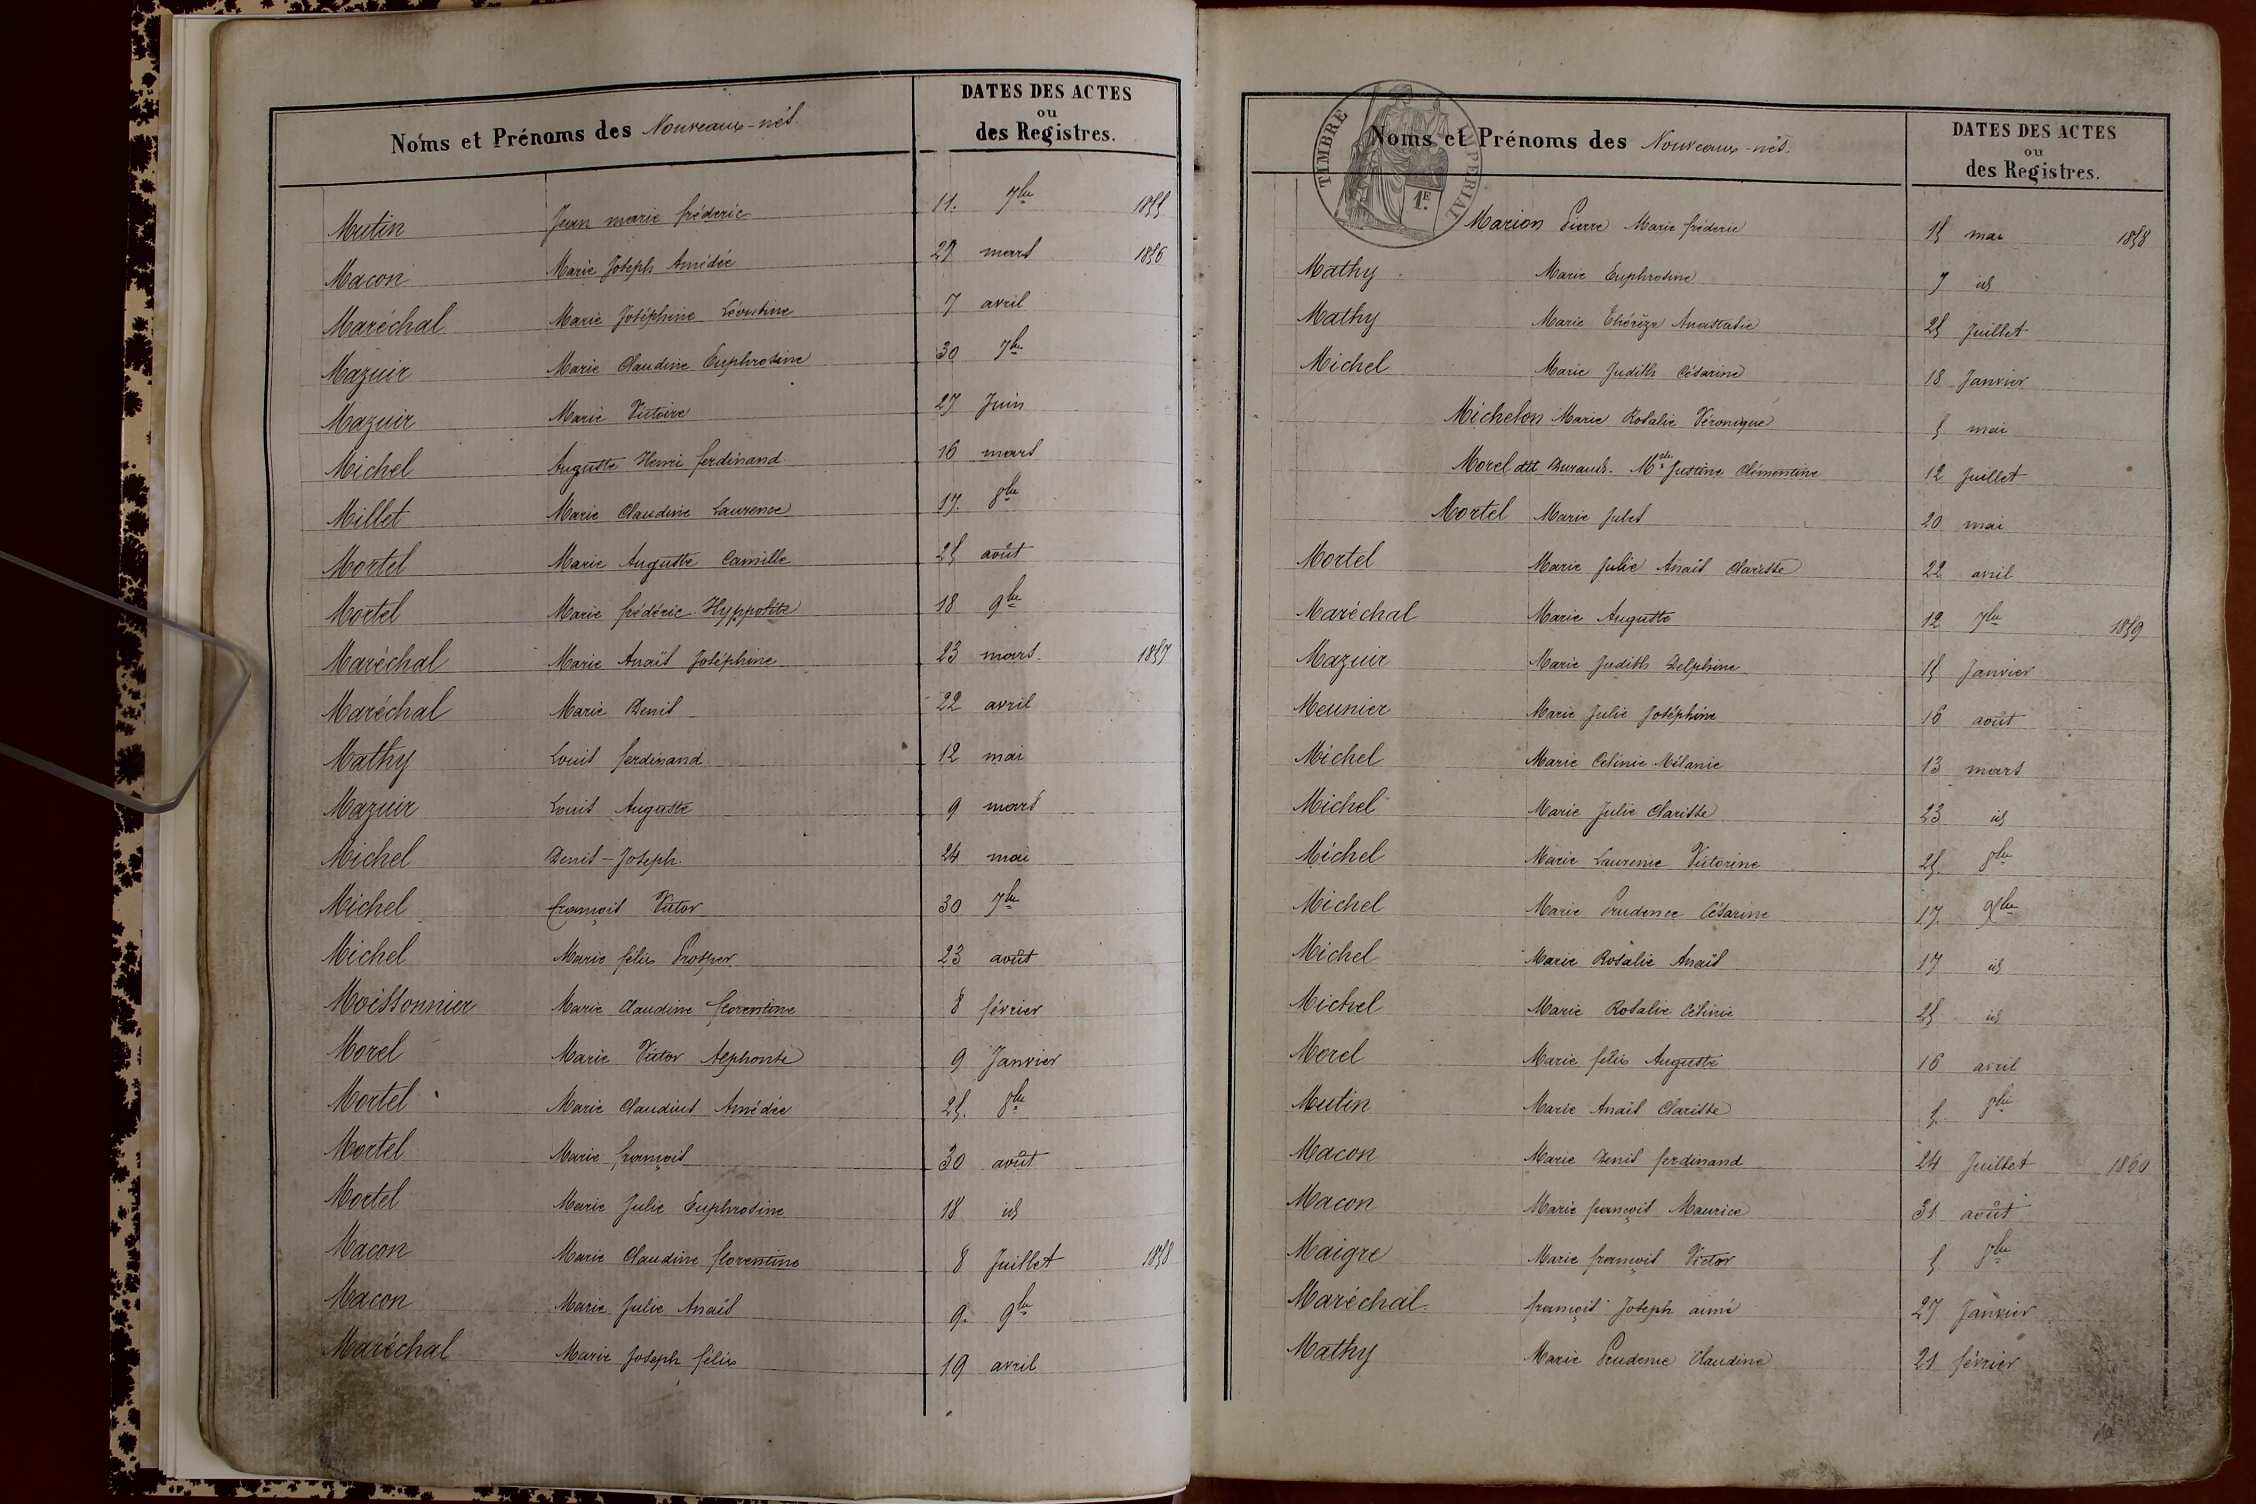 Noms et Prénoms des Nouveaux-nés.
DATES DES ACTES
ou
des Registres.
Mutin Jean marie fréderic 11. 7bre 1855
Macon Marie Joseph Amédée 27 mars 1856
Maréchal Marie Joséphine Léontine 7 avril
Mazuir Marie Claudine Euphrosine 30 7bre
Mazuir Marie Victoire 27 Juin
Michel Auguste Henri ferdinand 16 mars
Millet Marie Claudine Laurence 17. 8bre
Mortel Marie Auguste Camille 25 août
Mortel Marie fréderic Hyppolite 18 9bre
Maréchal Marie Anaïs Joséphine 23 mars 1857
Maréchal Marie Denis 22 avril
Mathy Louis ferdinand 12 mai
Mazuir Louis Auguste 9 mars
Michel Denis-Joseph 24 mai
Michel françois Victor 30 7bre
Michel Marie félix Prosper 23 août
Moissonnier Marie Claudine florentine 8 février
Morel Marie Victor Alphonse 9 Janvier
Mortel Marie Claudius Amédée 25. 8bre
Mortel Marie françois 30 août
Mortel Marie Julie Euphrosine 18 id
Macon Marie Claudine florentine 8 Juillet 1858
Macon Marie Julie Anaïs 9. 9bre
Maréchal Marie Joseph félix 19 avril
TIMBRE IMPERIAL
1F.
Noms et Prénoms des Nouveaux-nés.
DATES DES ACTES
ou
des Registres.
Marion Pierre Marie fréderic 15 mai 1858
Mathy Marie Euphrosine 7 id
Mathy Marie Thérèze Anastasie 25 Juillet
Michel Marie Judith Césarine 18 Janvier
Michelon Marie Rosalie Véronique 5 mai
Morel dit Durand. Mie Justine Clémentine 12 Juillet
Mortel Marie Jules 20 mai
Mortel Marie Julie Anaïs Clarisse 22 avril
Maréchal Marie Auguste 12 7bre 1859
Mazuir Marie Judith Delphine 15 Janvier
Meunier Marie Julie Joséphine 16 août
Michel Marie Célinie Mélanie 13 mars
Michel Marie Julie Clarisse 23 id
Michel Marie Laurence Victorine 25. 8bre
Michel Marie Prudence Césarine 17. 9bre
Michel Marie Rosalie Anaïs 17 id
Michel Marie Rosalie Célinie 25 id
Morel Marie félix Auguste 16 avril
Mutin Marie Anaïs Clarisse 5. 8bre
Macon Marie Denis ferdinand 24 Juillet 1860
Macon Marie françois Maurice 31 août
Maigre Marie françois Victor 5 8bre
Maréchal françois Joseph aimé 27 Janvier
Mathy Marie Prudence Claudine 21 février